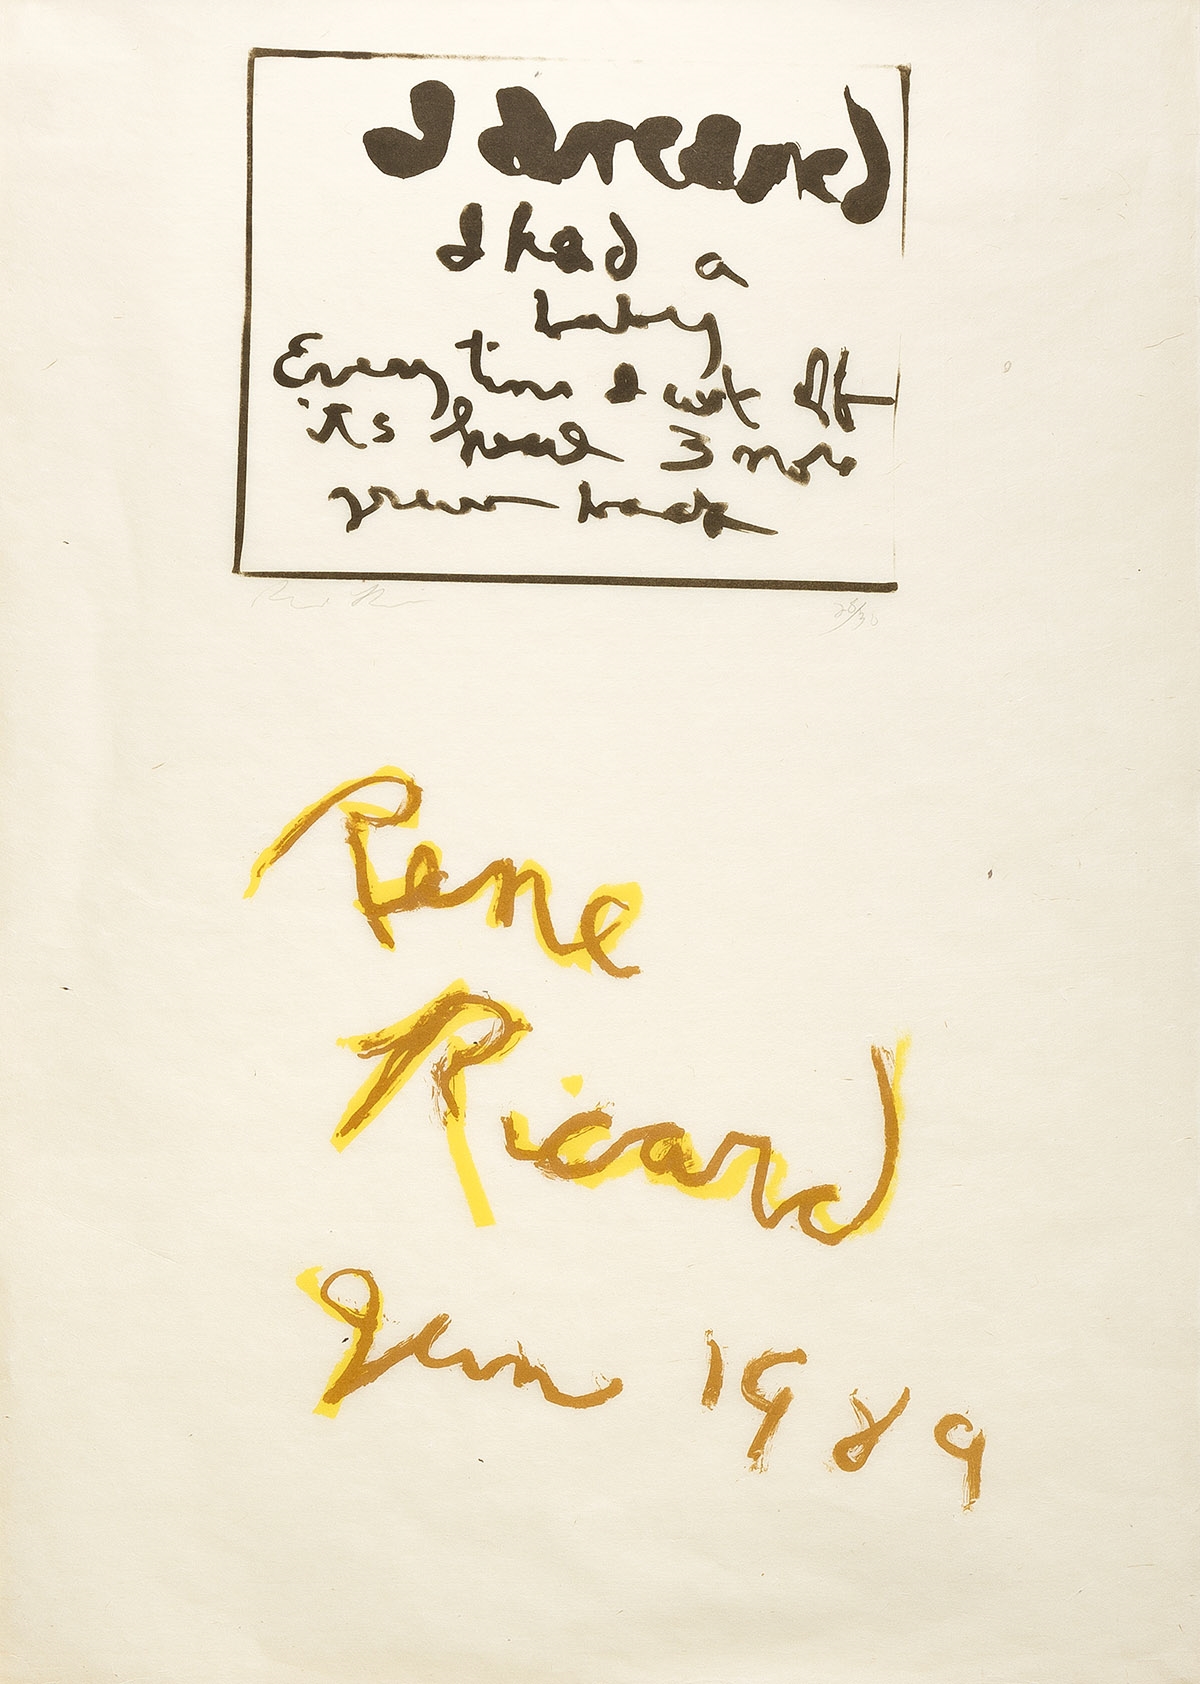 I dreamed
I had a
baby
Every time I cut off
its head 3 more
grew back
26/30
Rene
Ricard
Jan 1989